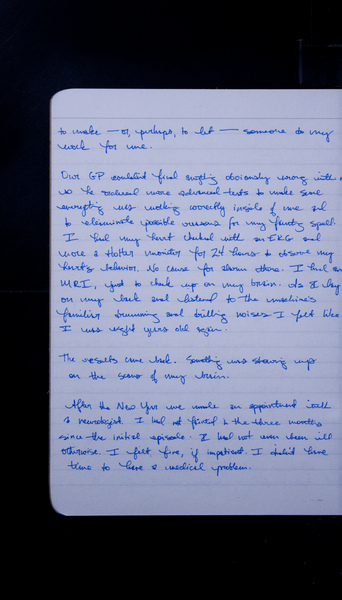 to make — or, perhaps, to let — someone do my
work for me.
Our GP couldn't find anything obviously wrong with
so he ordered more advanced tests to make sure
everything was working correctly inside of me and
to eliminate possible reasons for my fainting spell.
I had my heart checked with an EKG and
wore a Holter monitor for 24 hours to observe my
heart's behavior. No cause for alarm there. I had an
MRI, just to check up on my brain. As I lay
on my back and listened to the machine's
familiar humming and trilling noises I felt like
I was eight years old again.
The results came back. Something was showing up
on the scans of my brain.
After the New Year we made an appointment with
a neurologist. I had not fainted in the three months
since the initial episode. I had not even been ill
otherwise. I felt fine, if impatient. I didn't have
time to have a medical problem.